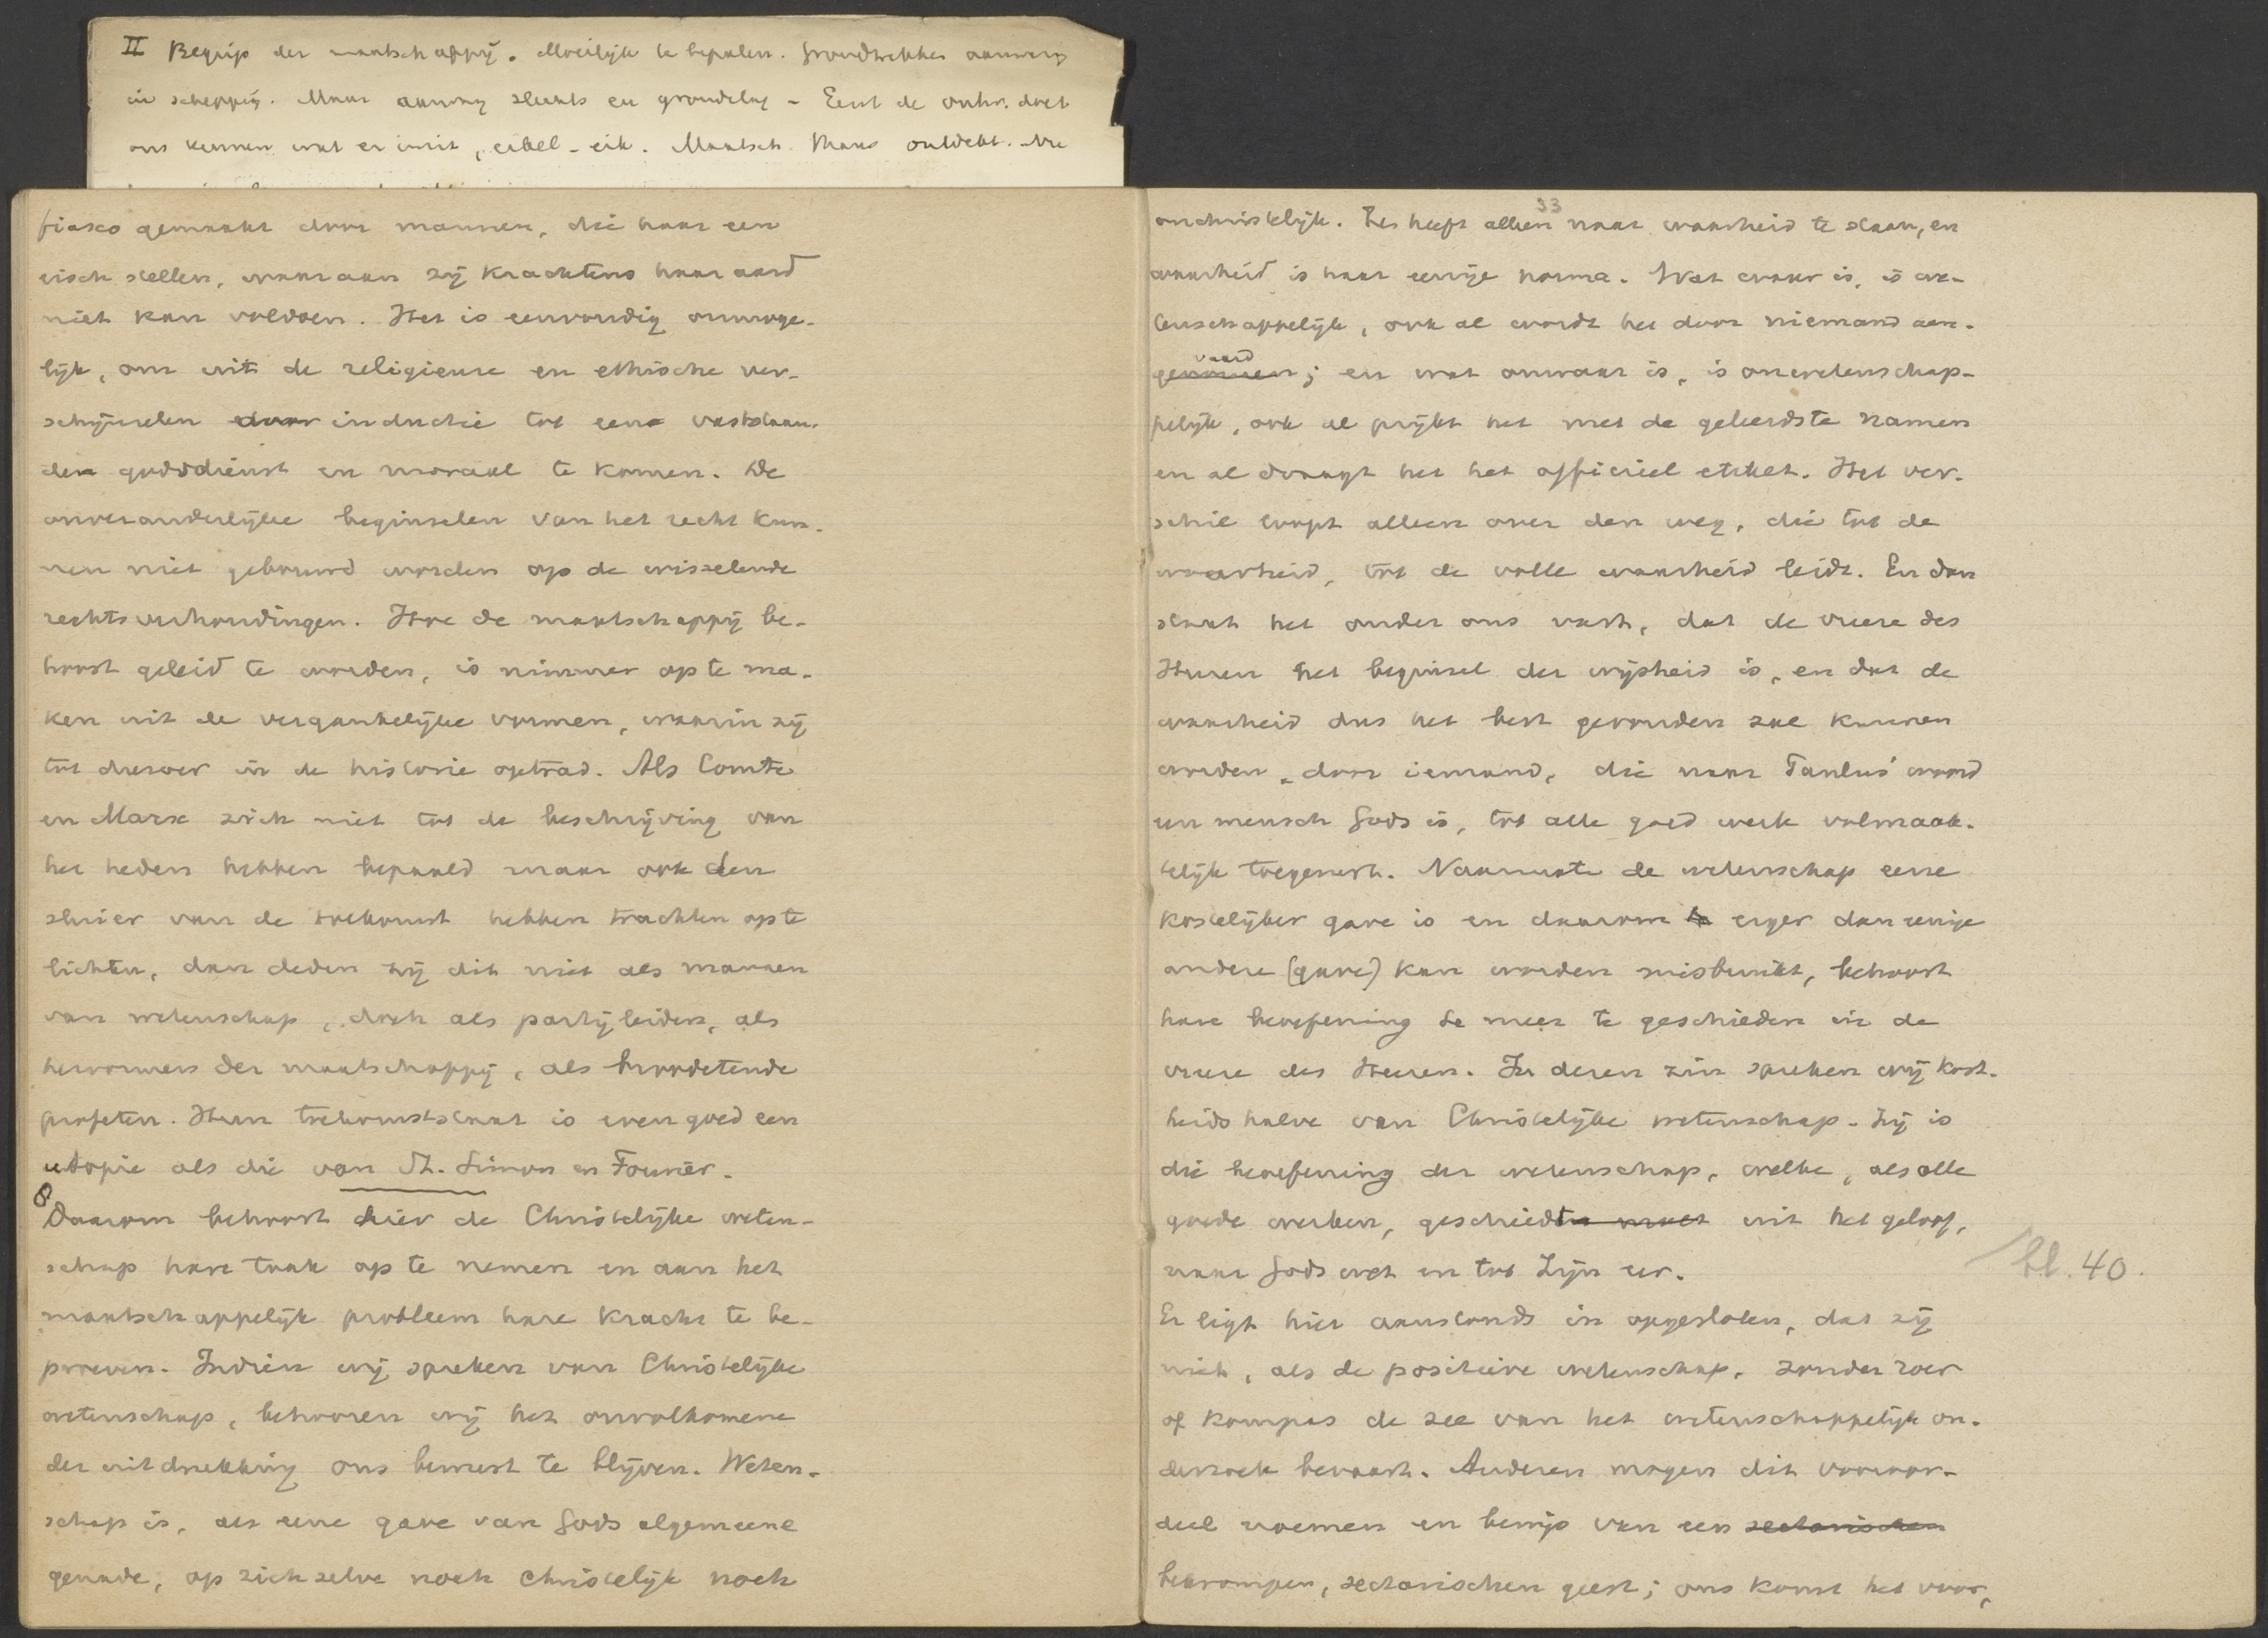 II Begrip der maatschappij. Moeilijk te bepalen. Grondtrekken aanwezig
in schepping. Maar aanvang slechts en grondslag - Eerst de ontw. doet
ons kennen wat er in zit, eikel - eik. Maatsch. thans ontdekt. Nu
fiasco gemaakt door mannen, die haar een
eisch stellen, waaraan zij krachtens haar aard
niet kan voldoen. Het is eenvoudig onmoge-
lijk, om uit de religieuse en ethische ver-
schijnselen door inductie tot eene vaststaan-
den godsdienst en moraal te komen. De
onveranderlijke beginselen van het recht kun-
nen niet gebouwd worden op de wisselende
rechtsverhoudingen. Hoe de maatschappij be-
hoort geleid te worden, is nimmer op te ma-
ken uit de vergankelijke vormen, waarin zij
tot dusver in de historie optrad. Als Comte
en Marx zich niet tot de beschrijving van
het heden hebben bepaald maar ook den
sluier van de toekomst hebben trachten op te
lichten, dan deden zij dit niet als mannen
van wetenschap, doch als partijleiders, als
hervormers der maatschappij, als broodetende
profeten. Hun toekomststaat is even goed een
utopie als die van St. Simon en Fourier.
8
Daarom behoort hier de Christelijke weten-
schap hare taak op te nemen en aan het
maatschappelijk probleem hare kracht te be-
proeven. Indien wij spreken van Christelijke
wetenschap, behooren wij het onvolkomene
der uitdrukking ons bewust te blijven. Weten-
schap is, als eene gave van Gods algemeene
genade, op zich zelve noch christelijk noch
33
onchristelijk. Zij heeft alleen naar waarheid te staan, en
waarheid is haar eenige norma. Wat waar is, is we-
tenschappelijk, ook al wordt het door niemand aan-
vaard
genomen; en wat onwaar is, is onwetenschap-
pelijk, ook al prijkt het met de geleerdste namen
en al draagt het het officieel etiket. Het ver-
schil loopt alleen over den weg, die tot de
waarheid, tot de volle waarheid leidt. En dan
staat het onder ons vast, dat de vreeze des
Heeren het beginsel der wijsheid is, en dat de
waarheid dus het best gevonden zal kunnen
worden door iemand, die naar Paulus' woord
een mensch Gods is, tot alle goed werk volmaak-
telijk toegerust. Naarmate de wetenschap eene
kostelijker gave is en daarom te erger dan eenige
andere (gave) kan worden misbruikt, behoort
hare beoefening te meer te geschieden in de
vreeze des Heeren. In dezen zin spreken wij kort-
heidshalve van Christelijke wetenschap. Zij is
die beoefening der wetenschap, welke, als alle
goede werken, geschiedt uit het geloof,
naar Gods wet en tot Zijn eer.
bl. 40.
Er ligt hier aanstonds in opgesloten, dat zij
niet, als de positieve wetenschap, zonder roer
of kompas de zee van het wetenschappelijk on-
derzoek bevaart. Anderen mogen dit vooroor-
deel noemen en bewijs van een sectarischen
bekrompen, sectarischen geest; ons komt het voor,